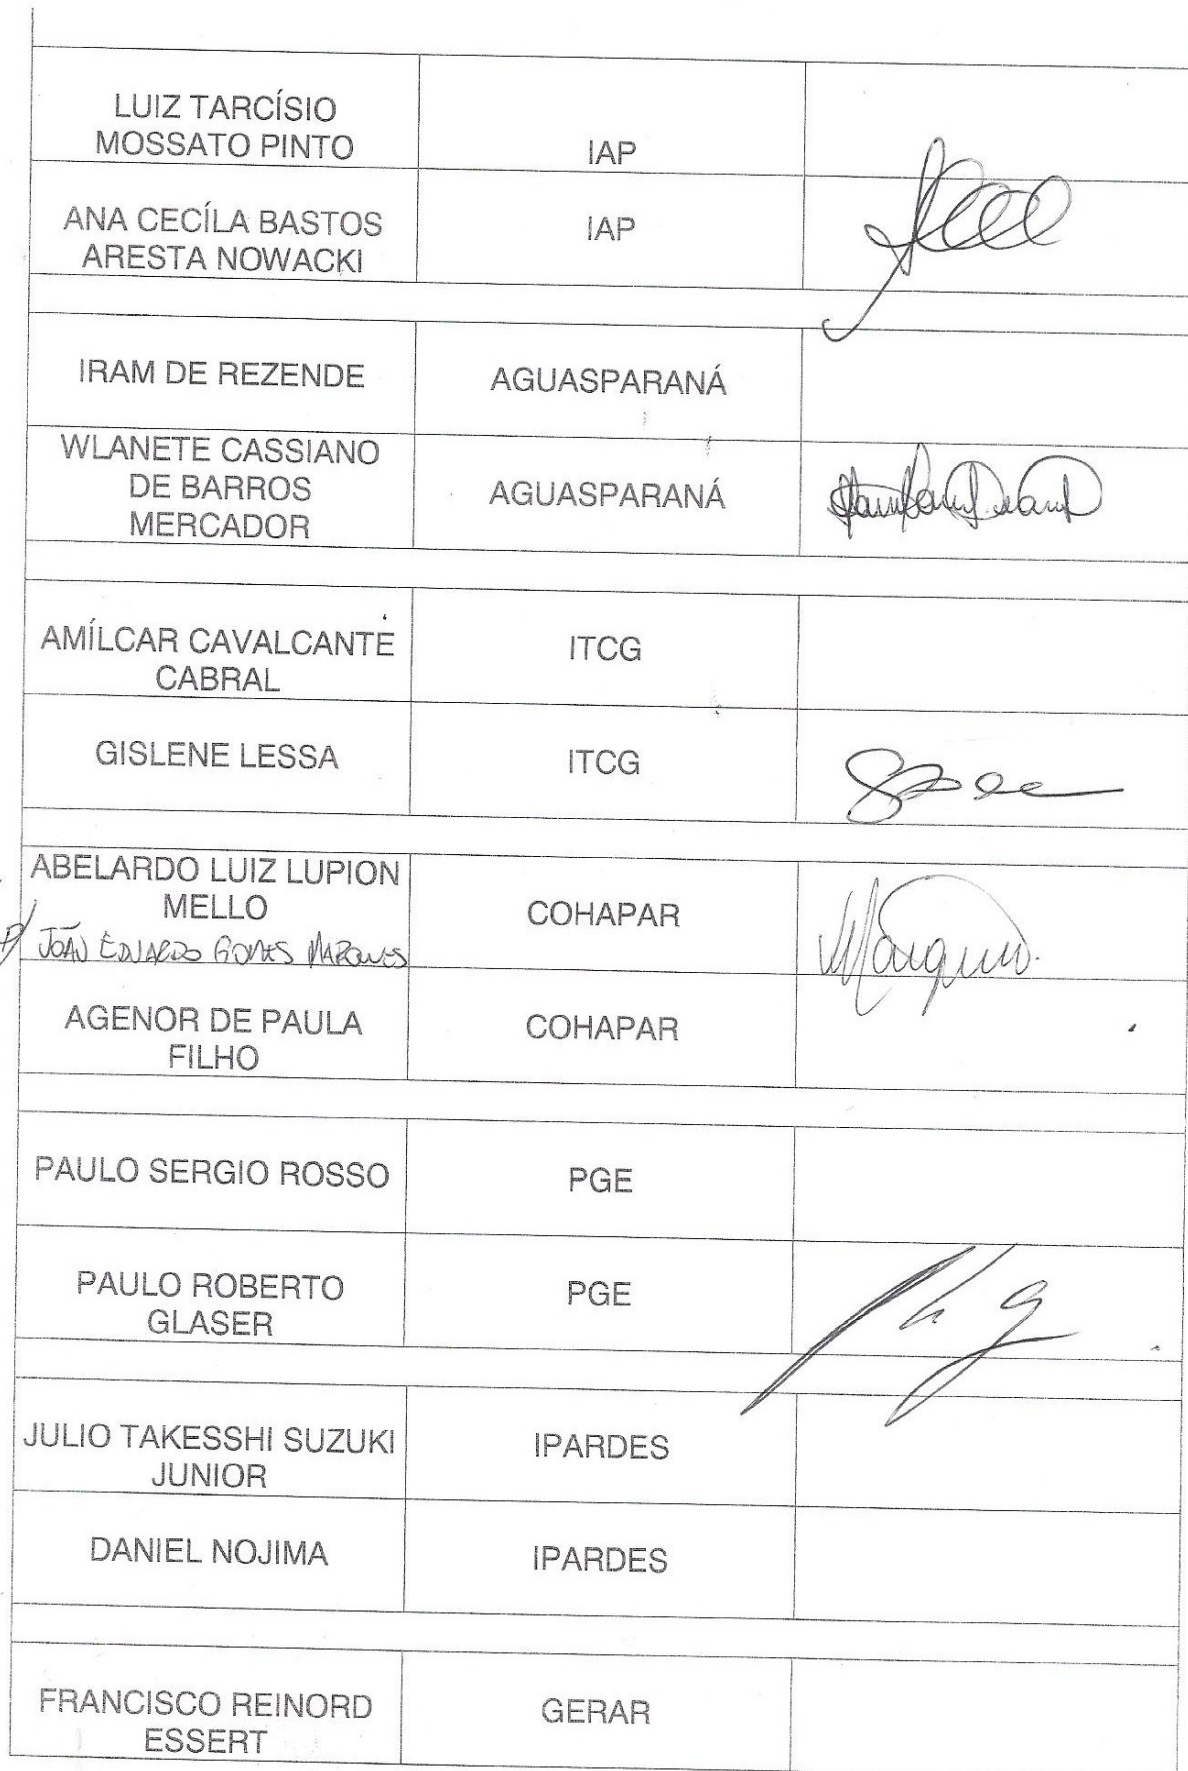 LUIZ TARCÍSIO
MOSSATO PINTO
IAP
ANA CECÍLA BASTOS
ARESTA NOWACKI
IAP
IRAM DE REZENDE
AGUASPARANÁ
WLANETE CASSIANO
DE BARROS
MERCADOR
AGUASPARANÁ
AMÍLCAR CAVALCANTE
CABRAL
ITCG
GISLENE LESSA
ITCG
ABELARDO LUIZ LUPION
MELLO
P/ JOÃO EDUARDO GOMES MARQUES
COHAPAR
AGENOR DE PAULA
FILHO
COHAPAR
PAULO SERGIO ROSSO
PGE
PAULO ROBERTO
GLASER
PGE
JULIO TAKESSHI SUZUKI
JUNIOR
IPARDES
DANIEL NOJIMA
IPARDES
FRANCISCO REINORD
ESSERT
GERAR